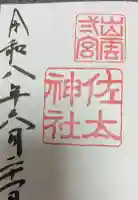 出雲
弐宮
佐太
神社
令和八年六月二十一日